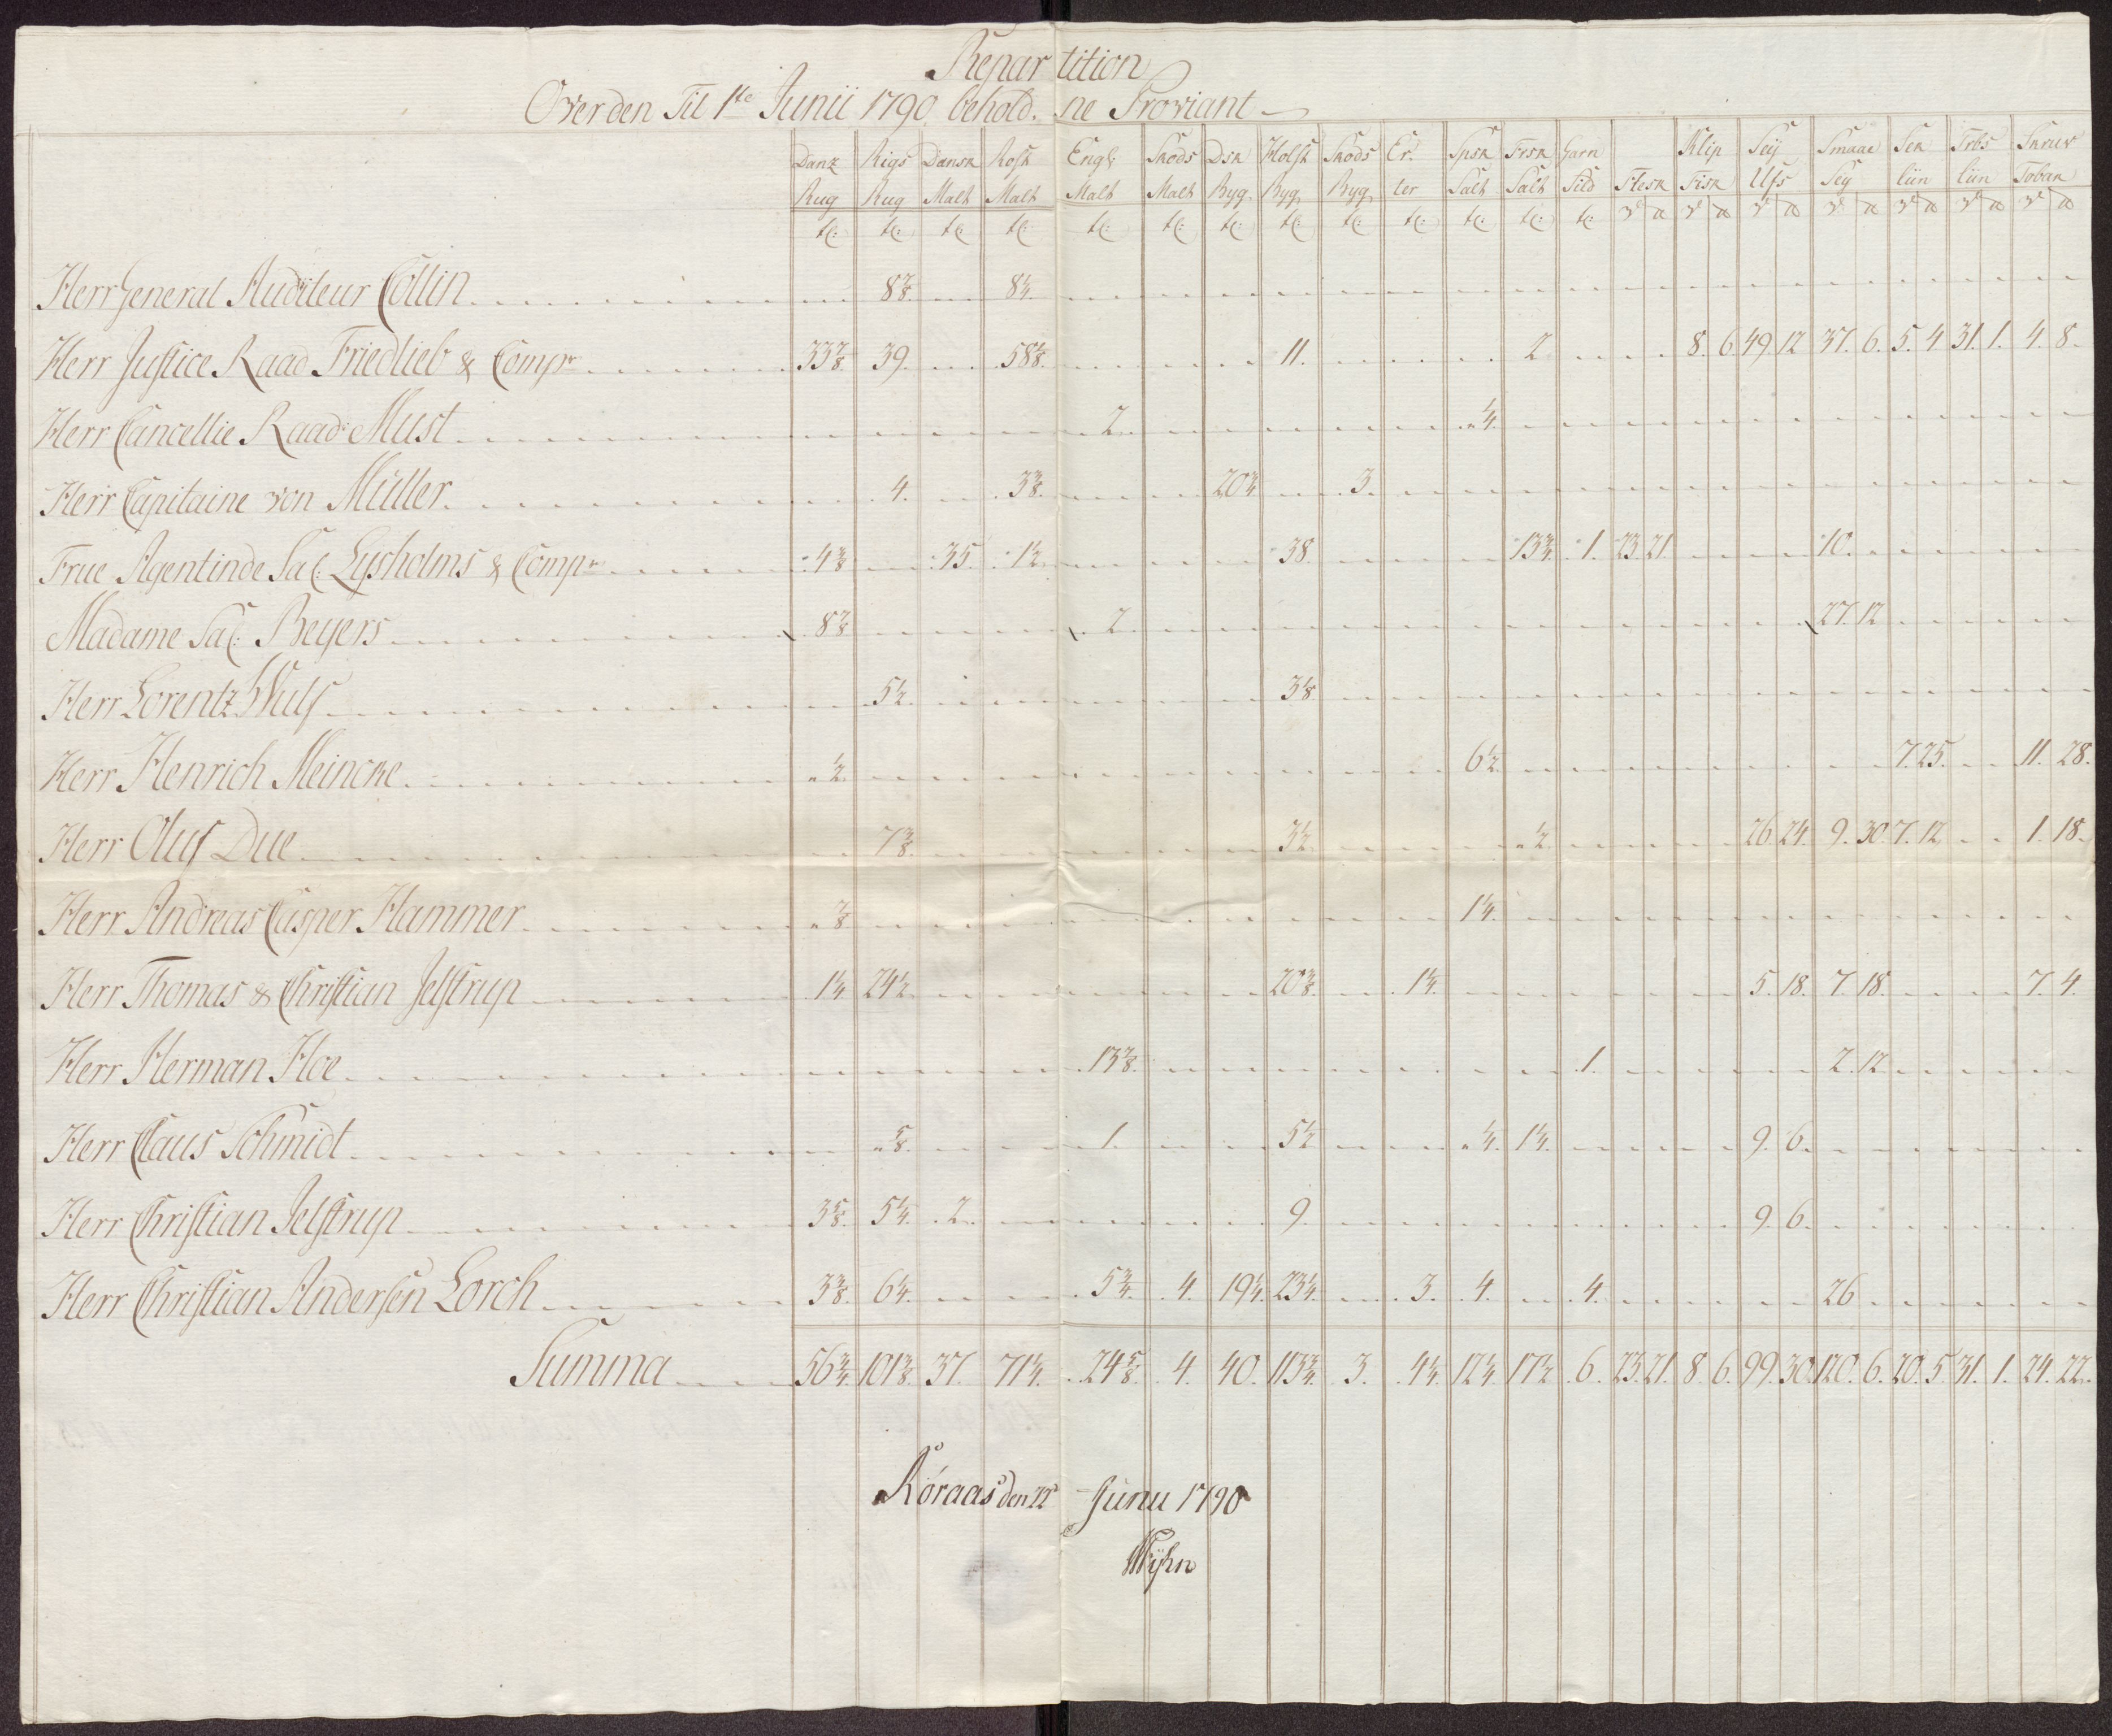 Repartition
Over den Til 1te Junii 1790 behold.ne Proviant
Danz Rigs Dansk Rost Engl: Skods Dsk Holst Skods Er. Spsk Frsk Garn Klip Seÿ Smaae Sek Trbs Skruv
Rug Rug Malt Malt Malt Malt Byg Byg Byg ter Salt Salt Sild Flesk Fisk Ufs Seÿ liin liin Tobak
Herr General Auditeur Collin 8 7/8. 8 1/4.
Herr Justice Raad Friedlieb & Compe 33 7/8. 39. 58 1/8. 11. 2 8. 6 49 12 37. 6. 5. 4 31. 1. 4. 8.
Herr Cancellie Raad Must 2. " 1/4.
Herr Capitaine von Müller 4. 3 3/8. 20 3/4 3.
Frue Agentinde Sal: Lysholms & Compe 4 3/8 35. 1 1/2 38. 13 3/4. 1. 23 21 10.
Madame Sal: Beyers 8 7/8 2. 27. 12
Herr Lorentz Wulf 5 1/2. 3 1/8
Herr Henrich Meincke " 1/2. 6 1/2. 7. 25. 11. 28.
Herr Oluf Due 7 3/8. 3 1/2 " 1/2. 26. 24. 9. 30. 7. 12 1. 18.
Herr Andreas Casper Hammer " 7/8 1 1/4.
Herr Thomas & Christian Jelstrup 1 1/4 24 1/2 20 3/8. 1 1/4. 5. 18. 7. 18. 7. 4.
Herr Herman Hoe 13 7/8. 1. 2. 12
Herr Claus Schmidt " 5/8. 1. 5 1/2 " 1/4. 1 1/4. 9. 6.
Herr Christian Jelstrup 3 5/8. 5 1/4. 2. 9. 9. 6.
Herr Christian Andersen Lorch 3 3/8. 6 1/4. 5 3/4. 4. 19 1/4. 23 1/4. 3. 4. 4. 26
Summa 56 3/4. 101 3/8. 37. 71 1/4. 24 5/8. 4. 40. 113 3/4. 3. 4 1/4. 12 1/4. 17 1/2. 6. 23. 21. 8. 6. 99. 30. 120. 6. 20. 5. 31. 1. 24. 22.
Röraas den 22 Junii 1790